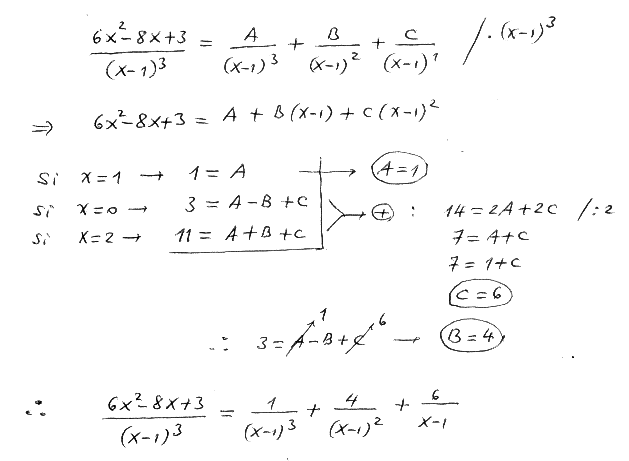 (6x²-8x+3)/(x-1)³ = A/(x-1)³ + B/(x-1)² + C/(x-1)¹ /·(x-1)³
⇒ 6x²-8x+3 = A + B(x-1) + C(x-1)²
Si x=1 → 1 = A → A=1
Si x=0 → 3 = A-B+C → ⊕ : 14=2A+2C /:2
Si x=2 → 11 = A+B+C 7=A+C
7=1+C
C=6
∴ 3=A-B+C → B=4
1 6
∴ (6x²-8x+3)/(x-1)³ = 1/(x-1)³ + 4/(x-1)² + 6/(x-1)